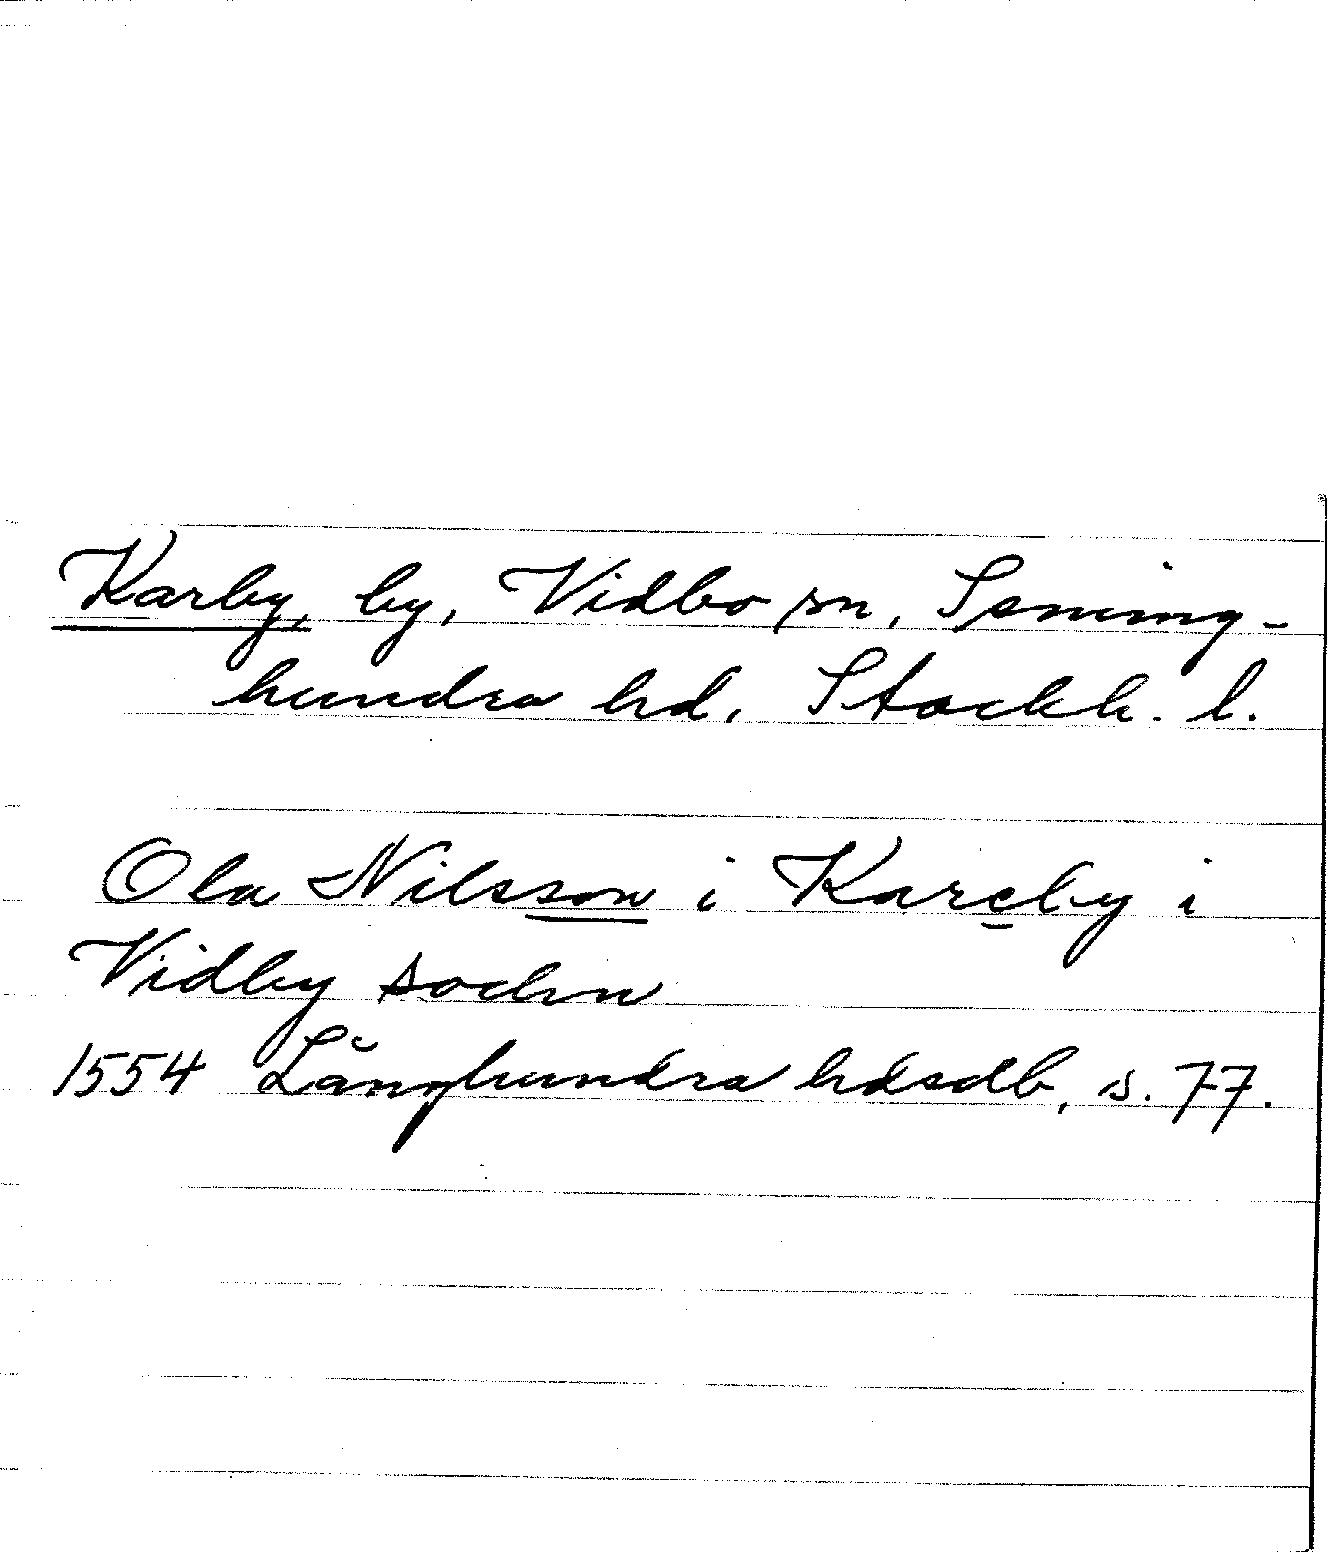 Karby, by, Vidbo sn, Seming-
hundra hd, Stockh. l.
Ola Nilsson i Kareby i
Vidby sochn
1554 Långhundra hdsdb, s. 77.